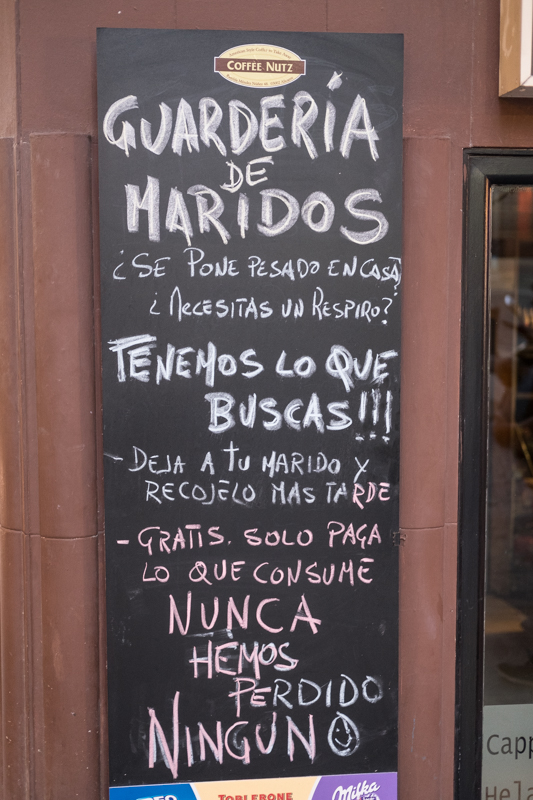 COFFEE NUTZ
GUARDERÍA
DE
MARIDOS
¿SE PONE PESADO EN CASA?
¿NECESITAS UN RESPIRO?
TENEMOS LO QUE
BUSCAS!!!
- DEJA A TU MARIDO Y
RECOJELO MAS TARDE
- GRATIS. SOLO PAGA
LO QUE CONSUME
NUNCA
HEMOS
PERDIDO
NINGUNO
TOBLERONE
Milka
Capp
Hela